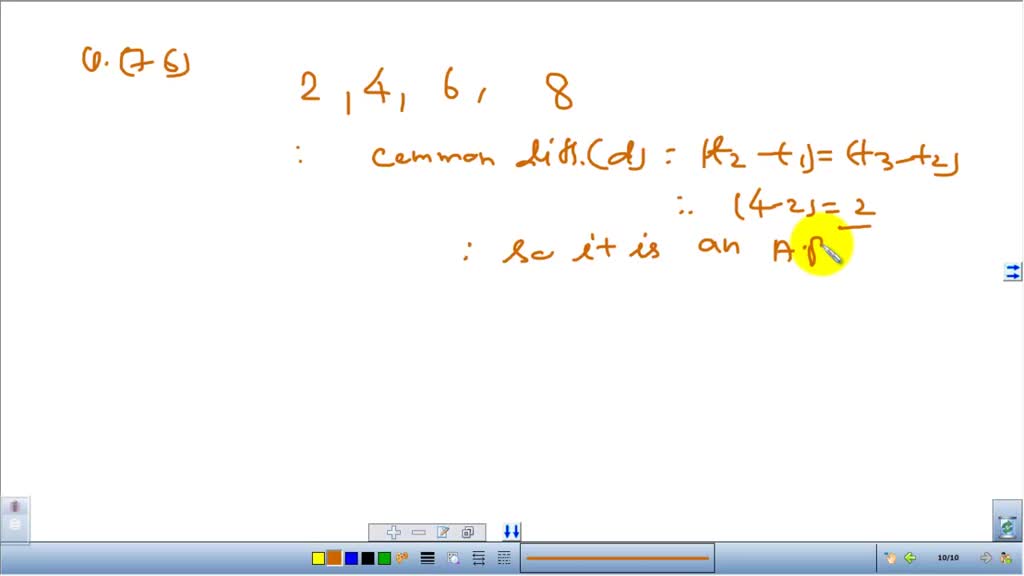 Q. (76)
2, 4, 6, 8
: common diff. (d) = (t2 - t1) = (t3 - t2)
∴ (4-2) = 2
: So it is an A.P
10/10